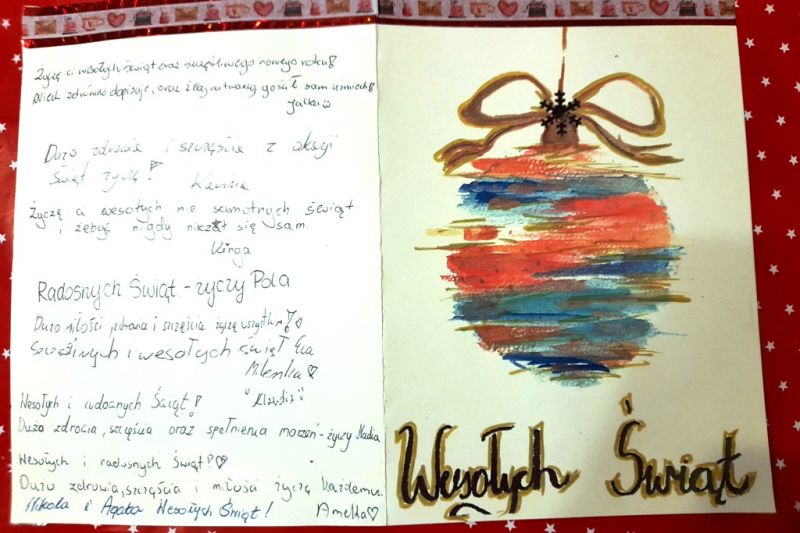 Życzę ci wesołych świąt oraz szczęśliwego nowego roku!
Niech zdrówno dopisuje, oraz żeby na twarzy gościł sam uśmiech!
Julka
Dużo zdrowia i szczęścia z okazji
Świąt życzę!
Karina
Życzę ci wesołych nie samotnych świąt
i żebyś nigdy nie czół się sam.
Kinga
Radosnych Świąt - życzy Pola
Dużo miłości, zdrowia i szczęścia życzę wszystkim! ♡
Szczęśliwych i wesołych świąt Ewa
Milenka ♡
Wesołych i radosnych Świąt! "Klaudia"
Dużo zdrocia, szczęścia oraz spełnienia marzeń - życzy Nadia
Wesołych i radosnych Świąt! ♡
Dużo zdrowia, szczęścia i miłości życzę każdemu.
Amelka ♡
Nikola i Agata Wesołych Świąt!
Wesołych Świąt